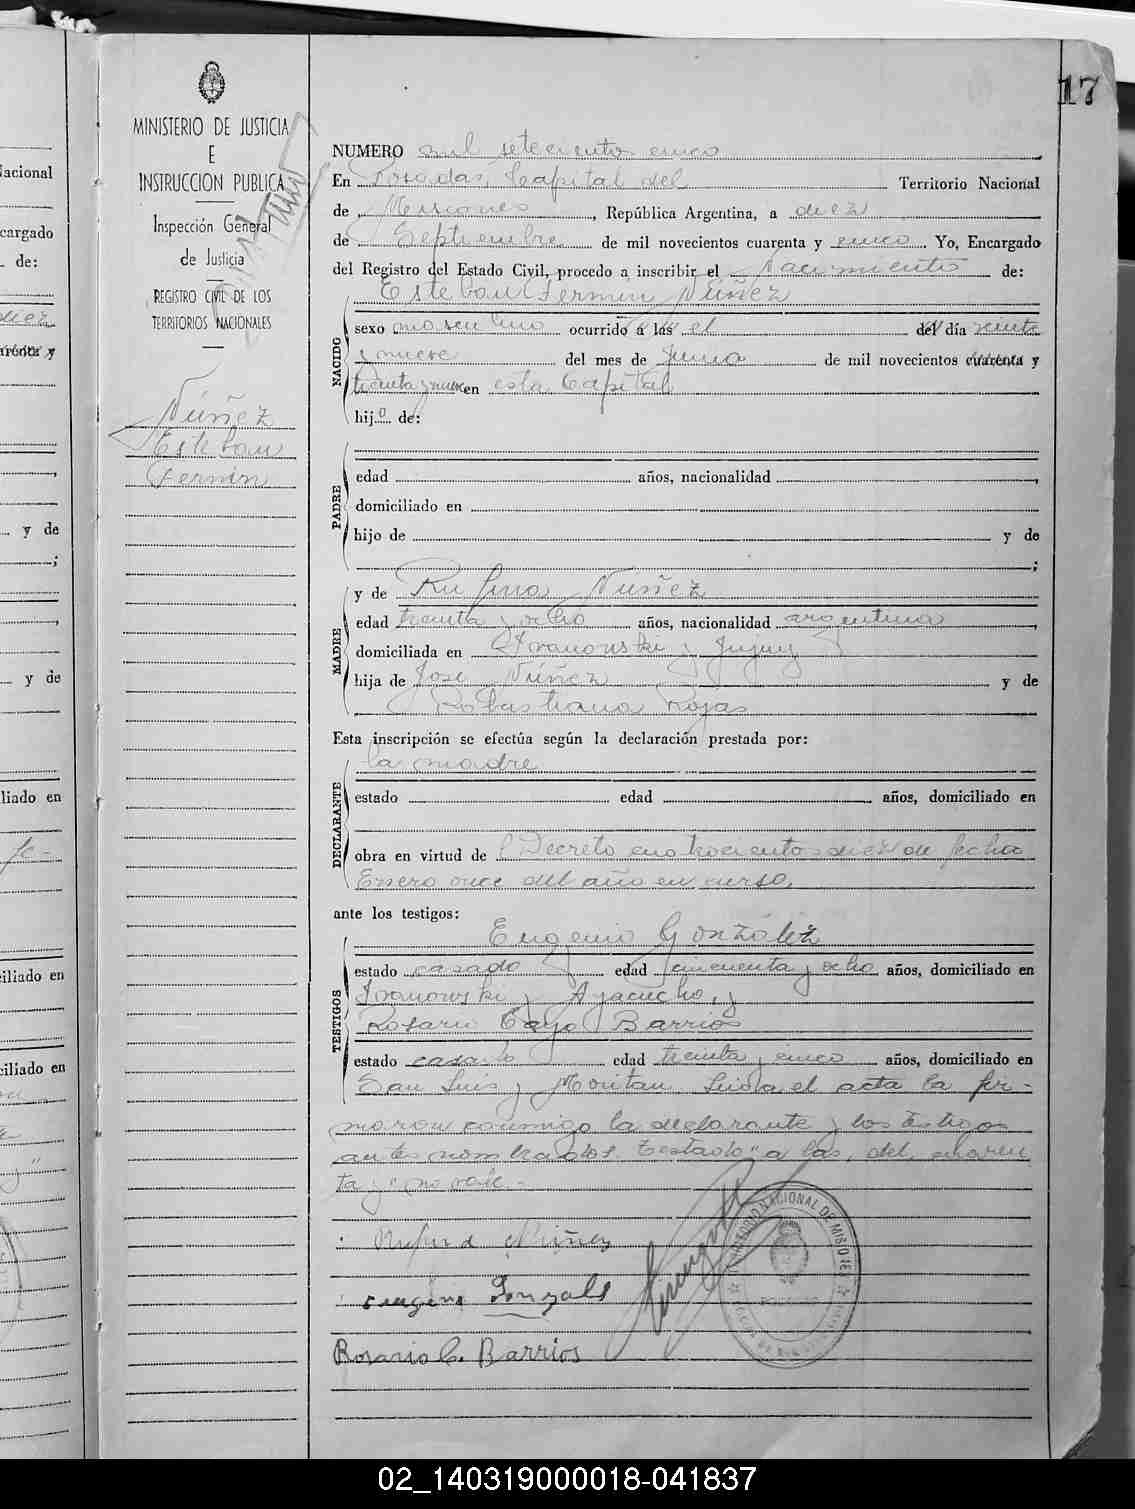 17
MINISTERIO DE JUSTICIA
E
INSTRUCCION PUBLICA
Inspección General
de Justicia
REGISTRO CIVIL DE LOS
TERRITORIOS NACIONALES
Núñez
Esteban
Fermín
NUMERO mil setecientos cinco
En Posadas, Capital del Territorio Nacional
de Misiones, República Argentina, a diez
de Septiembre de mil novecientos cuarenta y cinco. Yo, Encargado
del Registro del Estado Civil, procedo a inscribir el Nacimiento de:
Esteban Fermín Núñez
NACIDO
sexo masculino ocurrido a las el del día veinte
y nueve del mes de Junio de mil novecientos cuarenta y
treinta y nueve en esta Capital
hijo de:
PADRE
edad años, nacionalidad ,
domiciliado en
hijo de y de
;
y de Rufina Núñez
MADRE
edad treinta y ocho años, nacionalidad argentina,
domiciliada en Ivanowski y Jujuy
hija de José Núñez y de
Robustiana Rojas
Esta inscripción se efectúa según la declaración prestada por:
la madre
DECLARANTE
estado edad años, domiciliado en
obra en virtud de Decreto cuatrocientos diez de fecha
Enero once del año en curso,
ante los testigos:
Eugenio González
TESTIGOS
estado casado edad cincuenta y ocho años, domiciliado en
Ivanowski y Ayacucho, y
Rosario Cayo Barrios
estado casado edad treinta y cinco años, domiciliado en
San Luis y Moritan. Leida el acta la fir-
maron conmigo la declarante y los testigos
antes nombrados. Testado "a las, del, cuaren
ta y" no vale.-
Rufina Núñez
Eugenio Gonzales
Rosario C. Barrios
TERRITORIO NACIONAL DE MISIONES
nacional
cargado
de:
diez
y de
y de
liado en
ciliado en
ciliado en
02_140319000018-041837